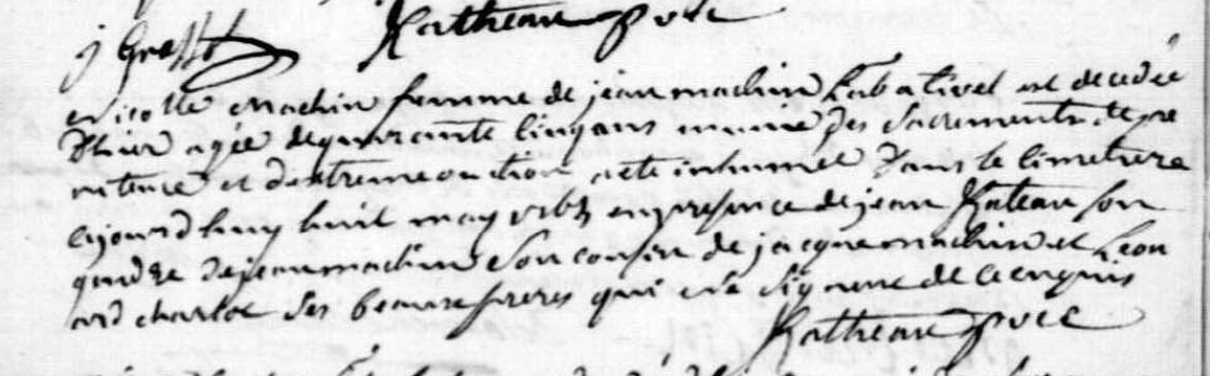 j Grossot Rathreau, p. vic
nicolle machin femme de jean machin Labalivet est decedée
d'hier agée de quarante cinq ans munie des sacrements de pe
nitence et d'extreme onction a eté inhumée dans le cimetiere
aujourd huy huit may en presence de jean Rateau son
gendre de jean machin son cousin de jacque machin et Leon
ard charlot ses beaux freres qui ne signent de ce enquis
Rathreau p. vic